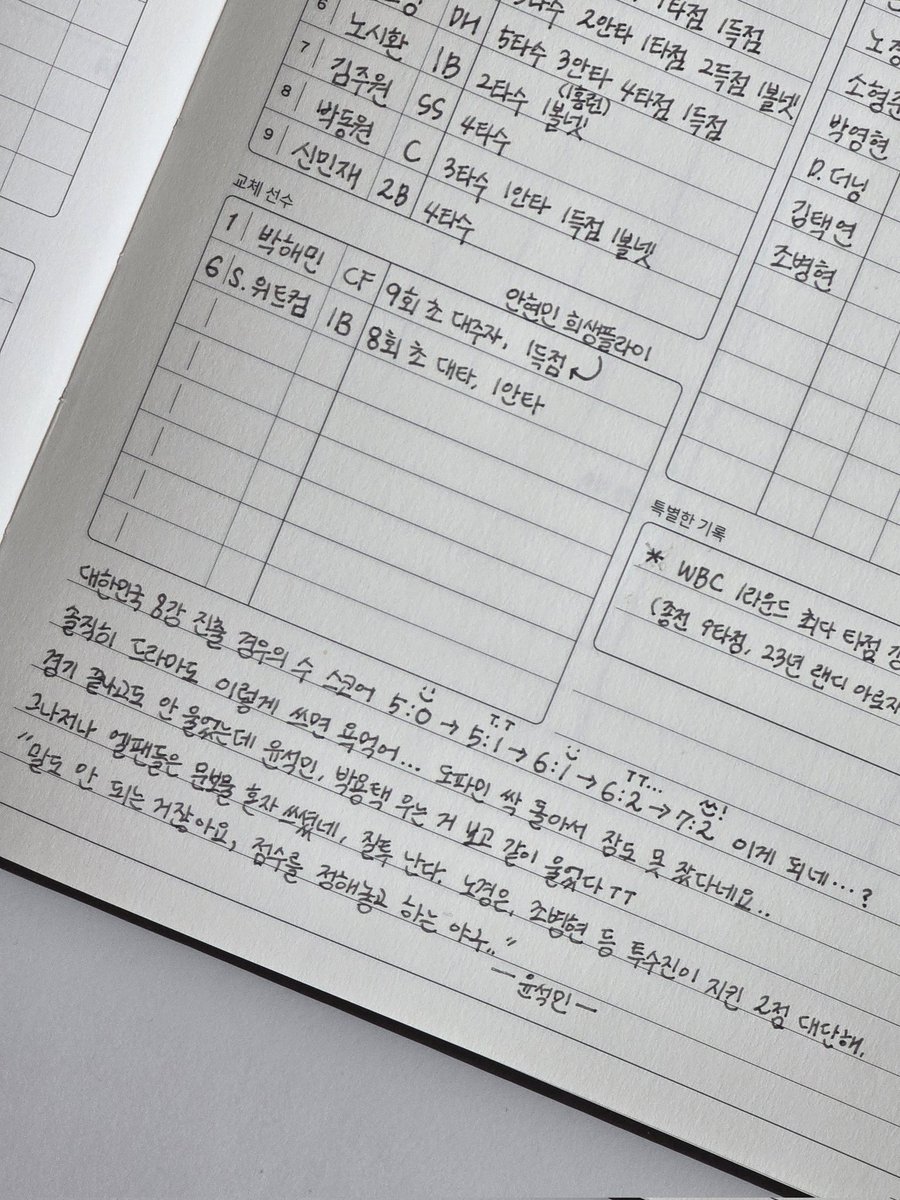 1타점 1득점
2안타 1타점 2득점 1볼넷
DH 5타수 3안타 4타점 1득점
(1홈런)
6 노시환 1B 2타수 1볼넷
7 김주원 SS 4타수
8 박동원 C 3타수 1안타 1득점 1볼넷
9 신민재 2B 4타수
교체 선수
안현민 희생플라이
1 박해민 CF 9회 초 대주자, 1득점
6 S. 위트컴 1B 8회 초 대타, 1안타
노경
소형준
박영현
D. 더닝
김택연
조병현
특별한 기록
* WBC 1라운드 최다 타점 갱
(종전 9타점, 23년 랜디 아로자
대한민국 8강 진출 경우의 수 스코어 5:0 → 5:1 → 6:1 → 6:2 → 7:2 이게 되네...?
솔직히 드라마도 이렇게 쓰면 욕먹어... 도파민 싹 돌아서 잠도 못 잤다네요..
경기 끝나고도 안 울었는데 윤석민, 박용택 우는 거 보고 같이 울었다 ㅜㅜ
그나저나 엘팬들은 문보물 혼자 썼었네, 질투 난다. 노경은, 조병현 등 투수진이 지킨 2점 대단해.
"말도 안 되는 거잖아요, 점수를 정해놓고 하는 야구.."
-윤석민-